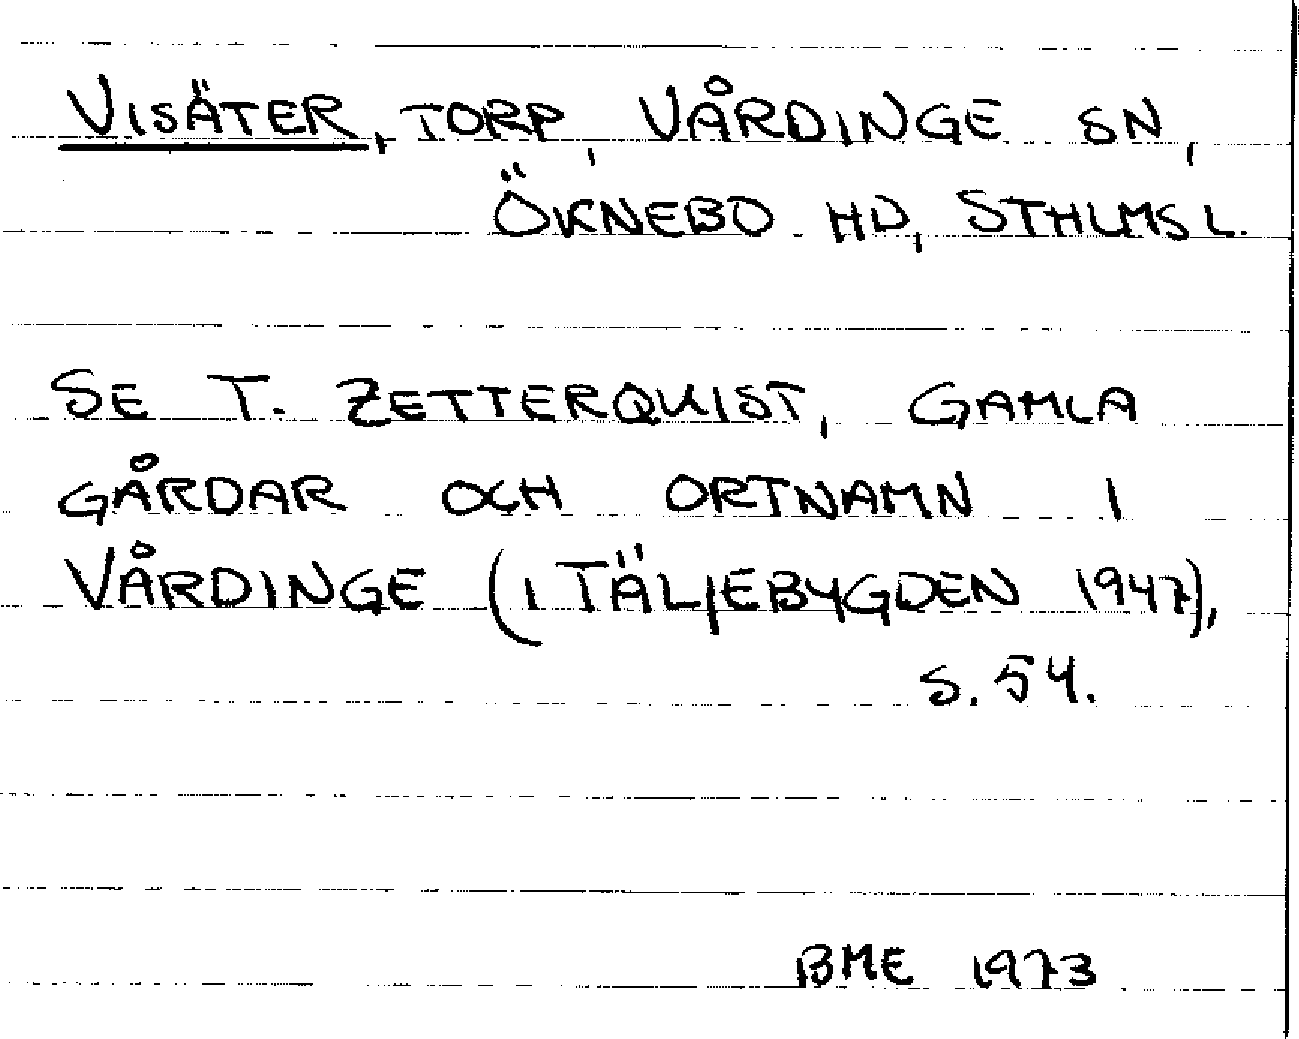 VISÄTER, TORP, VÅRDINGE SN,
ÖKNEBO HD, STHLMS L.
SE T. ZETTERQUIST, GAMLA
GÅRDAR OCH ORTNAMN I
VÅRDINGE (I TÄLJEBYGDEN 1947),
S. 54.
BME 1973